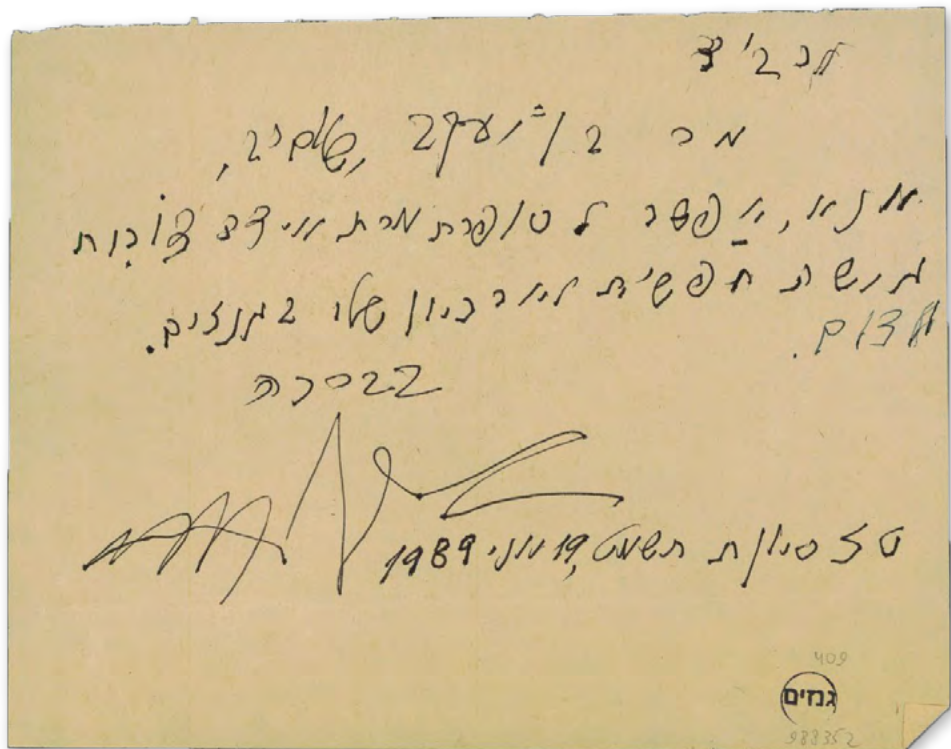 לכב'
מר בן יעקב, שלום רב,
אנא, אפשר לסופרת מרת אידה צורית
גישה חפשית לארכיון שלי בגנזים.
בברכה
טז סיון תשמט, 19 יוני 1989
409
גנזים
988352